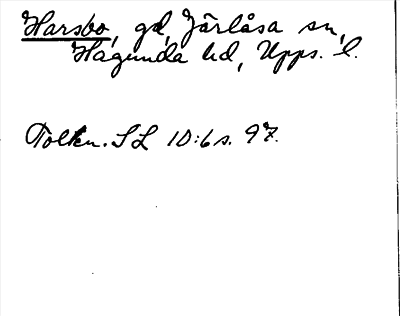 Harsbo, gd, Järlåsa sn,
Hagunda hd, Upps. l.
Tolkn. SL 10:6 s. 97.